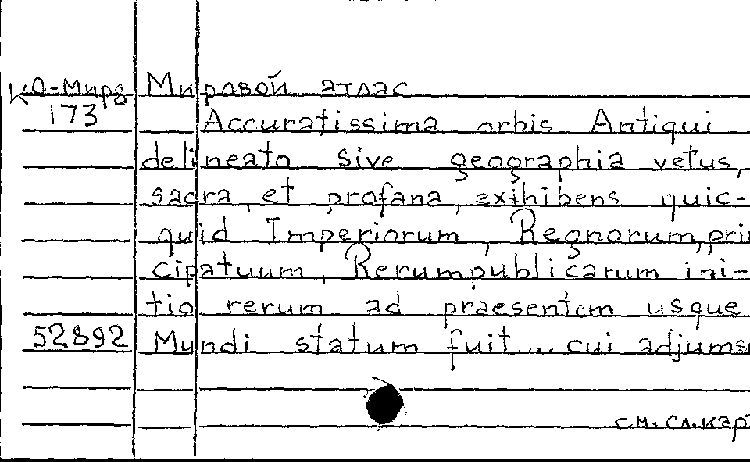 КО-Мира Мировой атлас
173 Accuratissima orbis Antiqui
delineato sive geographia vetus,
sacra, et profana, exihibens quic-
quid Imperiorum, Regnorum, prin
cipatuum, Rerumpublicarum ini-
tio rerum ad praesentem usque
52892 Mundi statum fuit... cui adjums
см. сл. кар